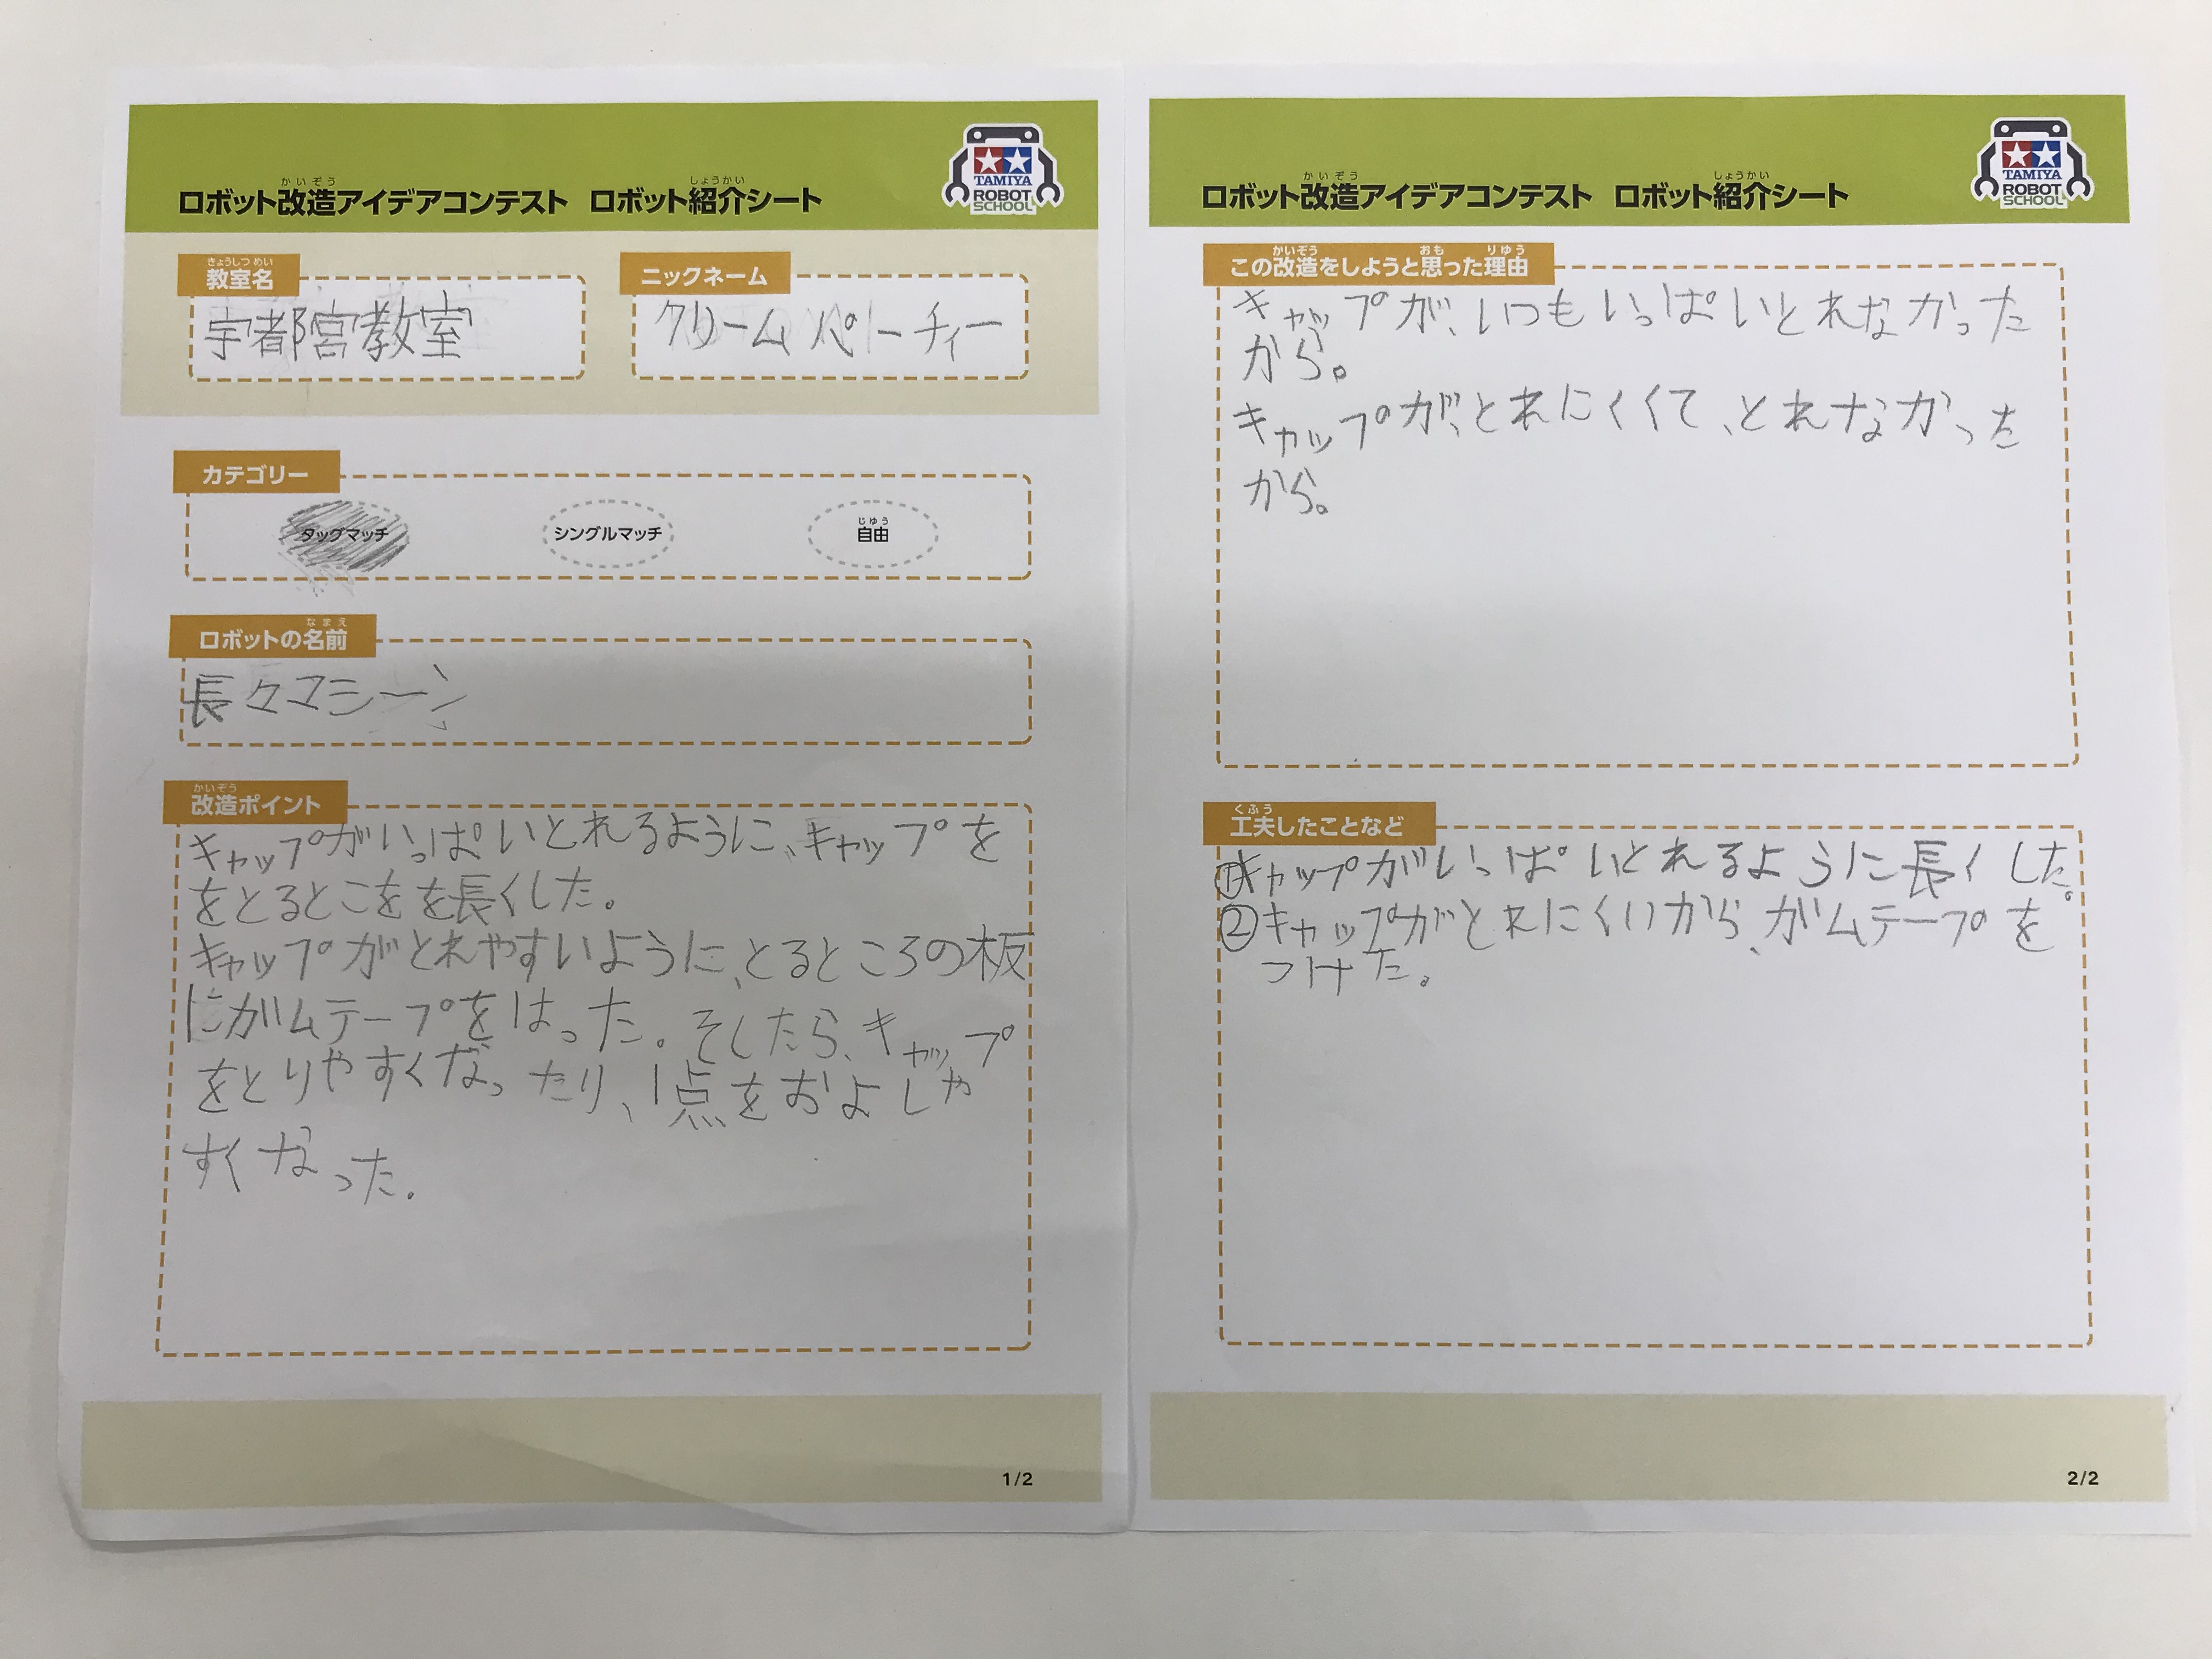 かいぞう しょうかい
ロボット改造アイデアコンテスト ロボット紹介シート
TAMIYA
ROBOT
SCHOOL
きょうしつ めい
教室名
宇都宮教室
ニックネーム
クリームパーティー
カテゴリー
タッグマッチ
シングルマッチ
じゆう
自由
なまえ
ロボットの名前
長々マシーン
かいぞう
改造ポイント
キャップがいっぱいとれるように、キャップを
をとるとこをを長くした。
キャップがとれやすいように、とるところの板
にガムテープをはった。そしたら、キャップ
をとりやすくなったり、1点をおよしや
すくなった。
1/2
かいぞう しょうかい
ロボット改造アイデアコンテスト ロボット紹介シート
TAMIYA
ROBOT
SCHOOL
かいぞう おも りゆう
この改造をしようと思った理由
キャップが、いつもいっぱいとれなかった
から。
キャップが、とれにくくて、とれなかっを
から。
くふう
工夫したことなど
①キャップがいっぱいとれるように長くした。
②キャップがとれにくいから、ガムテープを
つけた。
2/2